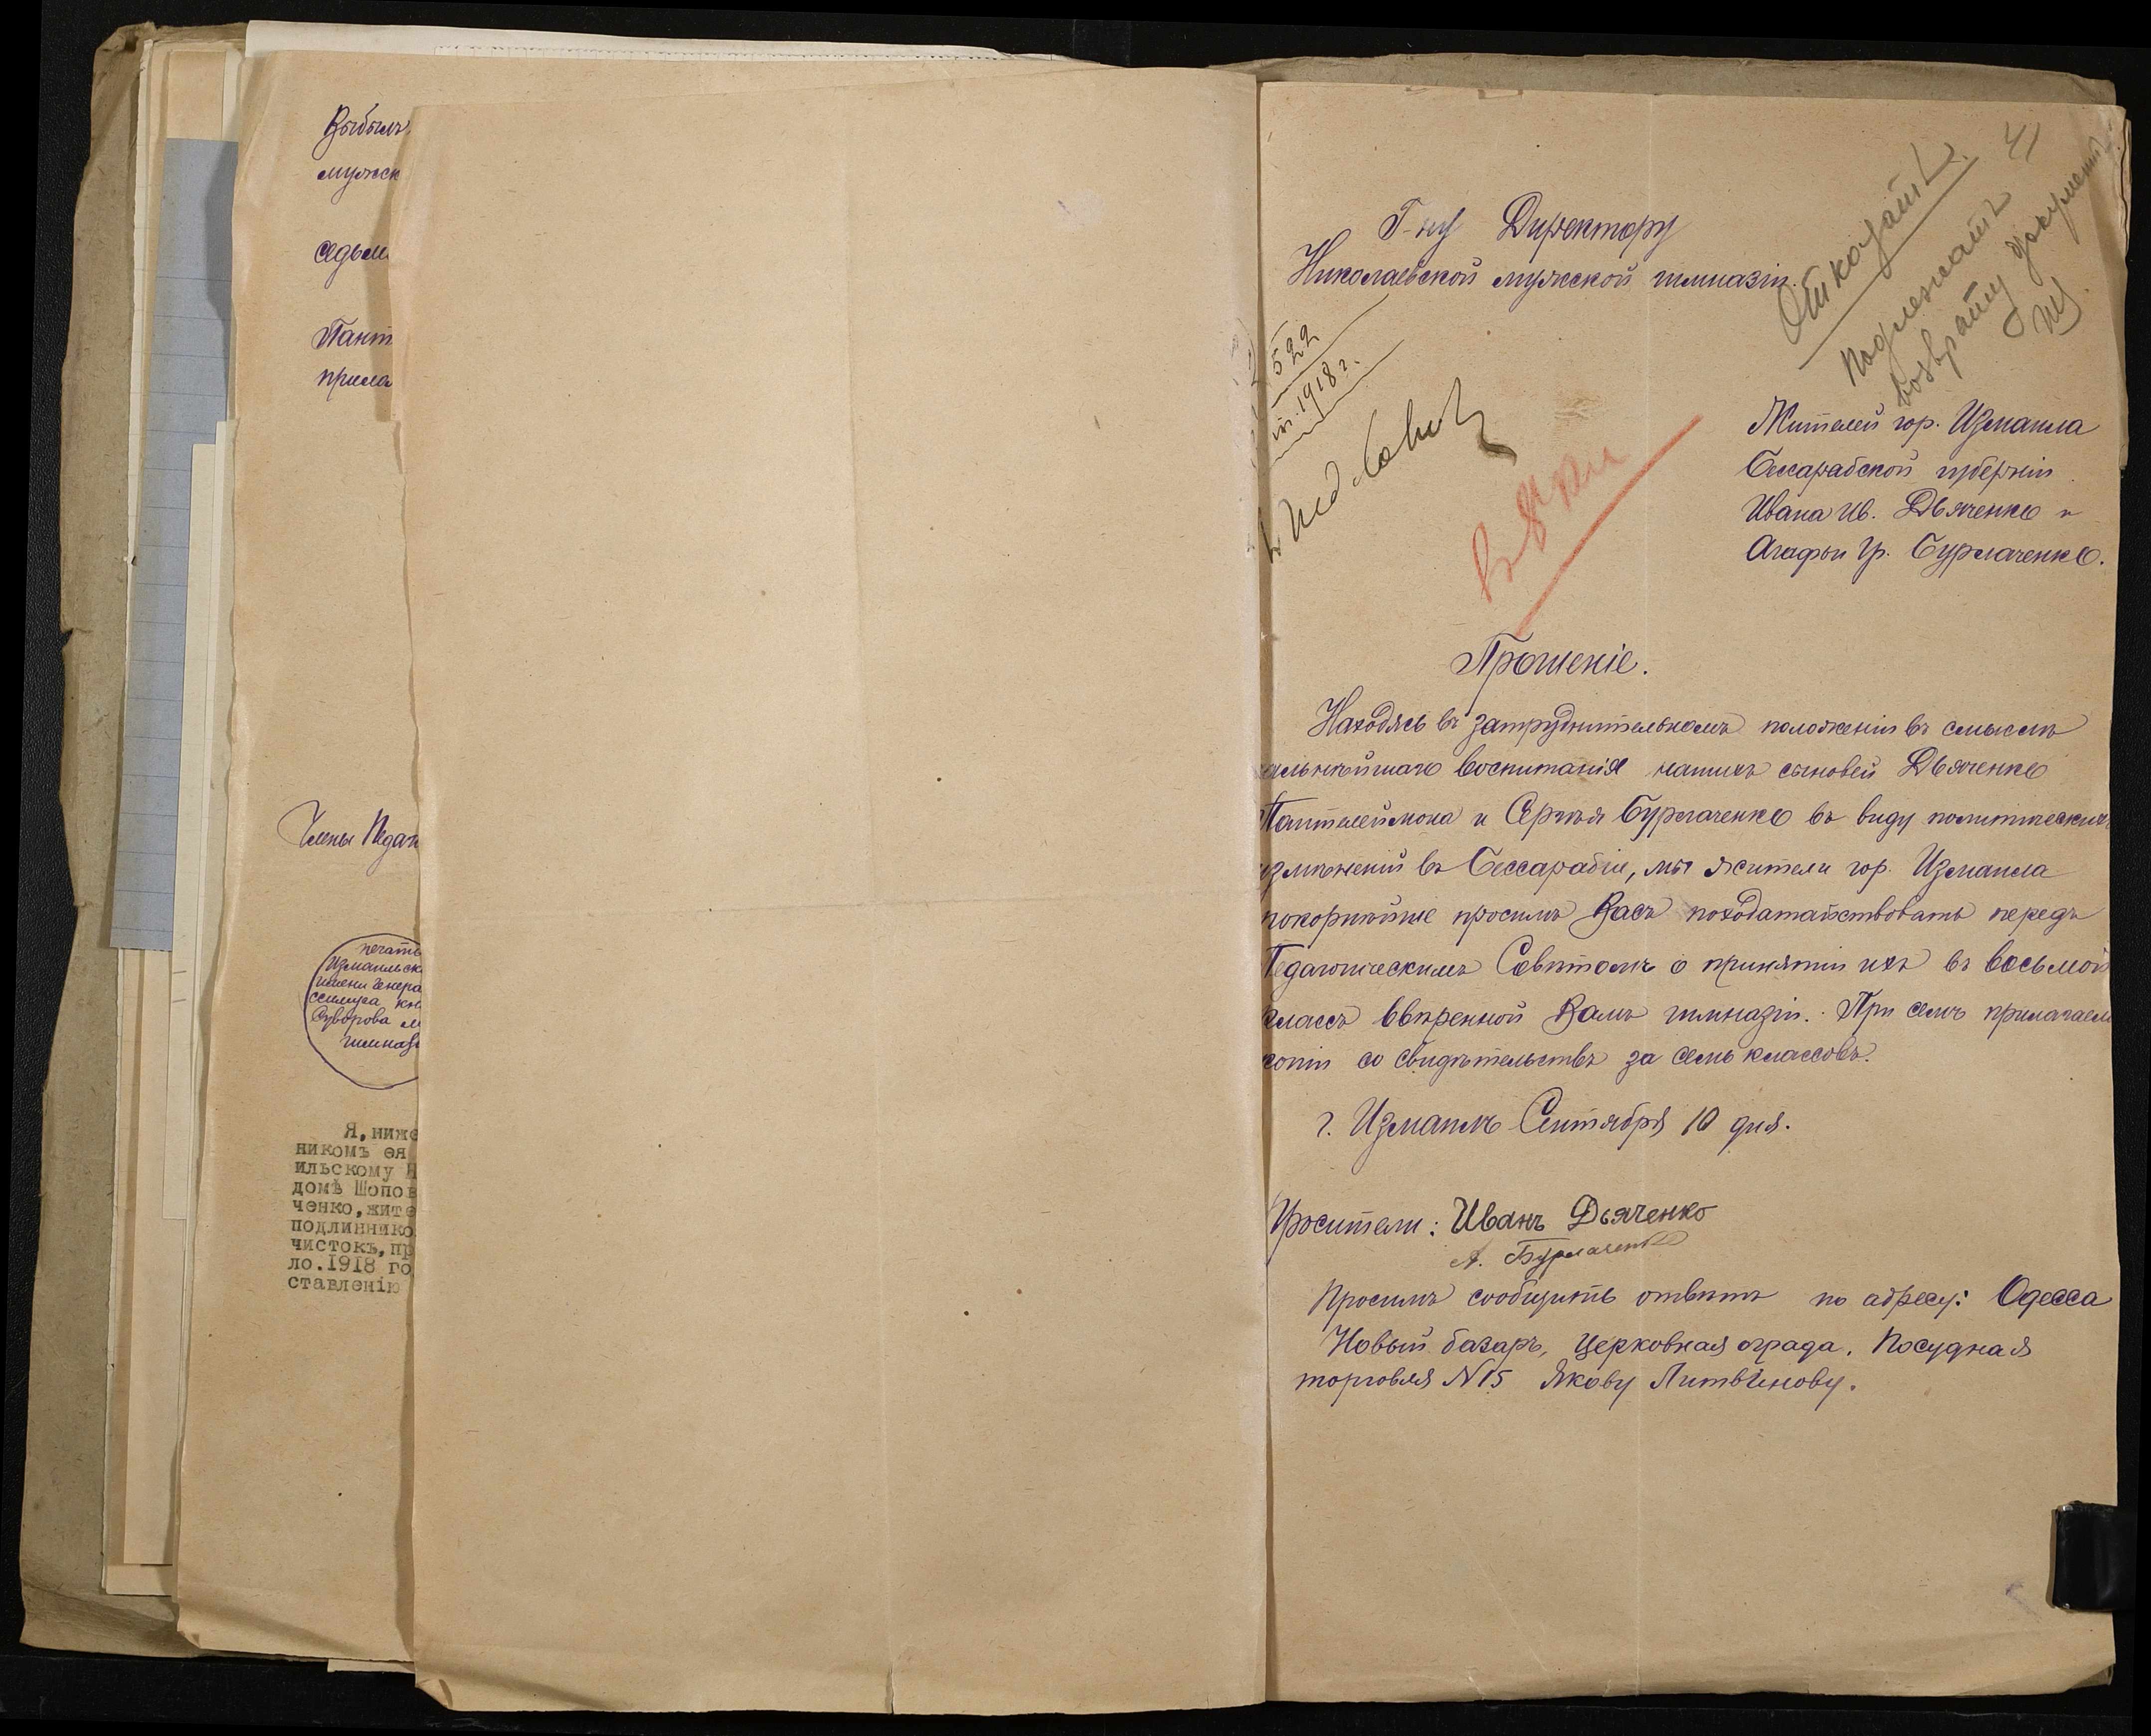 Выбылъ
мужск
седьм
Пант
прила
Члены Педаг
печать
Измаильск
имени Генера
ссимуса кн
Суворова м
гимназ
Я, ниже
никомъ ѳя
ильскому Н
домѣ Шопов
ченко, жите
подлиннико
чистокъ, пр
ло. 1918 го
ставленію
41
Отказать.
Подлежатъ
возврату документы
Г-ну Директору
Николаевской мужской гимназіи.
522
1918 г.
Жителей гор. Измаила
Бессарабской губерніи
Ивана Ив. Дьяченко и
Агафьи Гр. Бурлаченко.
Прошеніе.
Находясь въ затруднительномъ положеніи въ смыслѣ
дальнѣйшаго воспитанія нашихъ сыновей Дьяченко
Пантелеймона и Сергѣя Бурлаченко въ виду политическихъ
измѣненій въ Бессарабіи, мы жители гор. Измаила
покорнѣйше просимъ Васъ походатайствовать передъ
Педагогическимъ Совѣтомъ о принятіи ихъ въ восьмой
классъ ввѣренной Вамъ гимназіи. При семъ прилагаем
копіи со свидѣтельствъ за семь классовъ.
г. Измаилъ Сентября 10 дня.
Просители: Иванъ Дьяченко
А. Бурлаченко
Просимъ сообщить отвѣтъ по адресу: Одесса
Новый базаръ, Церковная ограда. Посудная
торговля N 15 Якову Литвинову.